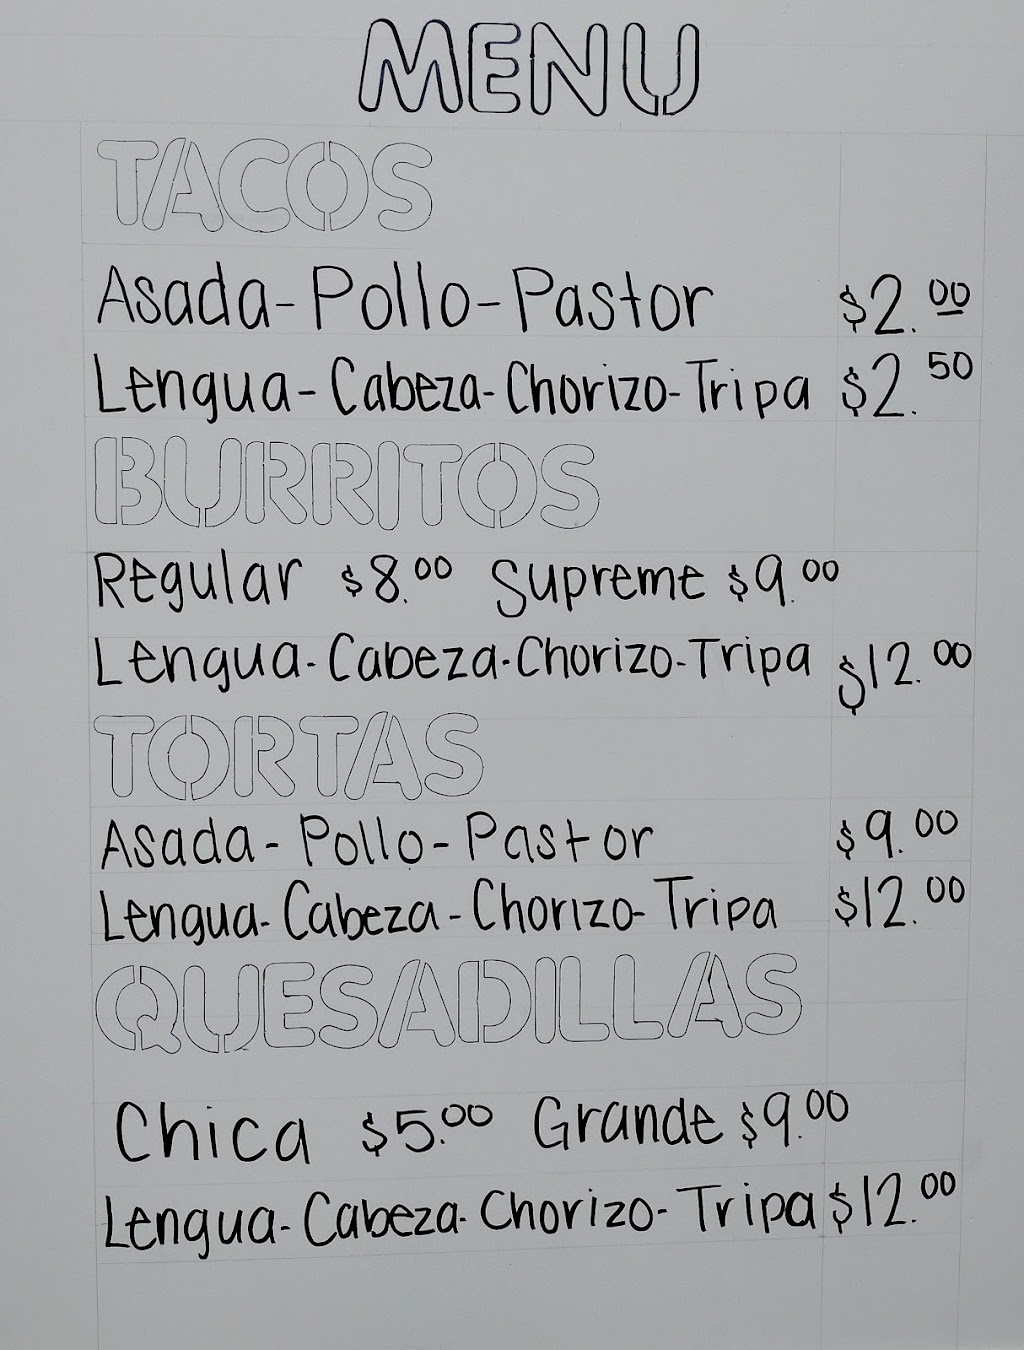 MENU
TACOS
Asada-Pollo-Pastor $2.00
Lengua-Cabeza-Chorizo-Tripa $2.50
BURRITOS
Regular $8.00 Supreme $9.00
Lengua-Cabeza-Chorizo-Tripa $12.00
TORTAS
Asada-Pollo-Pastor $9.00
Lengua-Cabeza-Chorizo-Tripa $12.00
QUESADILLAS
Chica $5.00 Grande $9.00
Lengua-Cabeza-Chorizo-Tripa $12.00